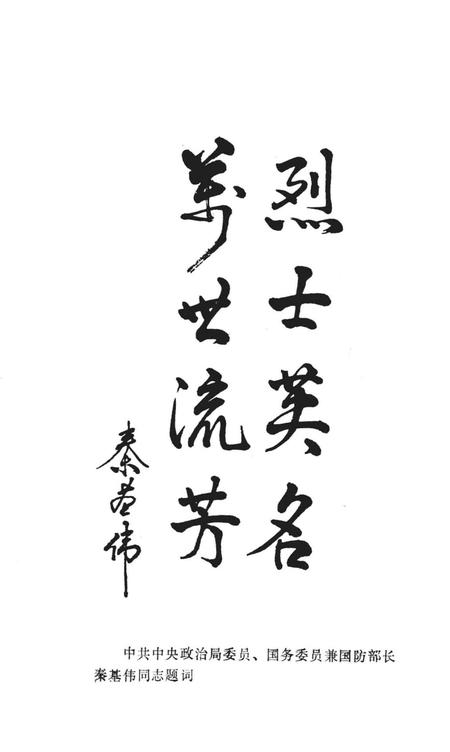 烈士英名
萬世流芳
秦基伟
中共中央政治局委员、国务委员兼国防部长
秦基伟同志题词